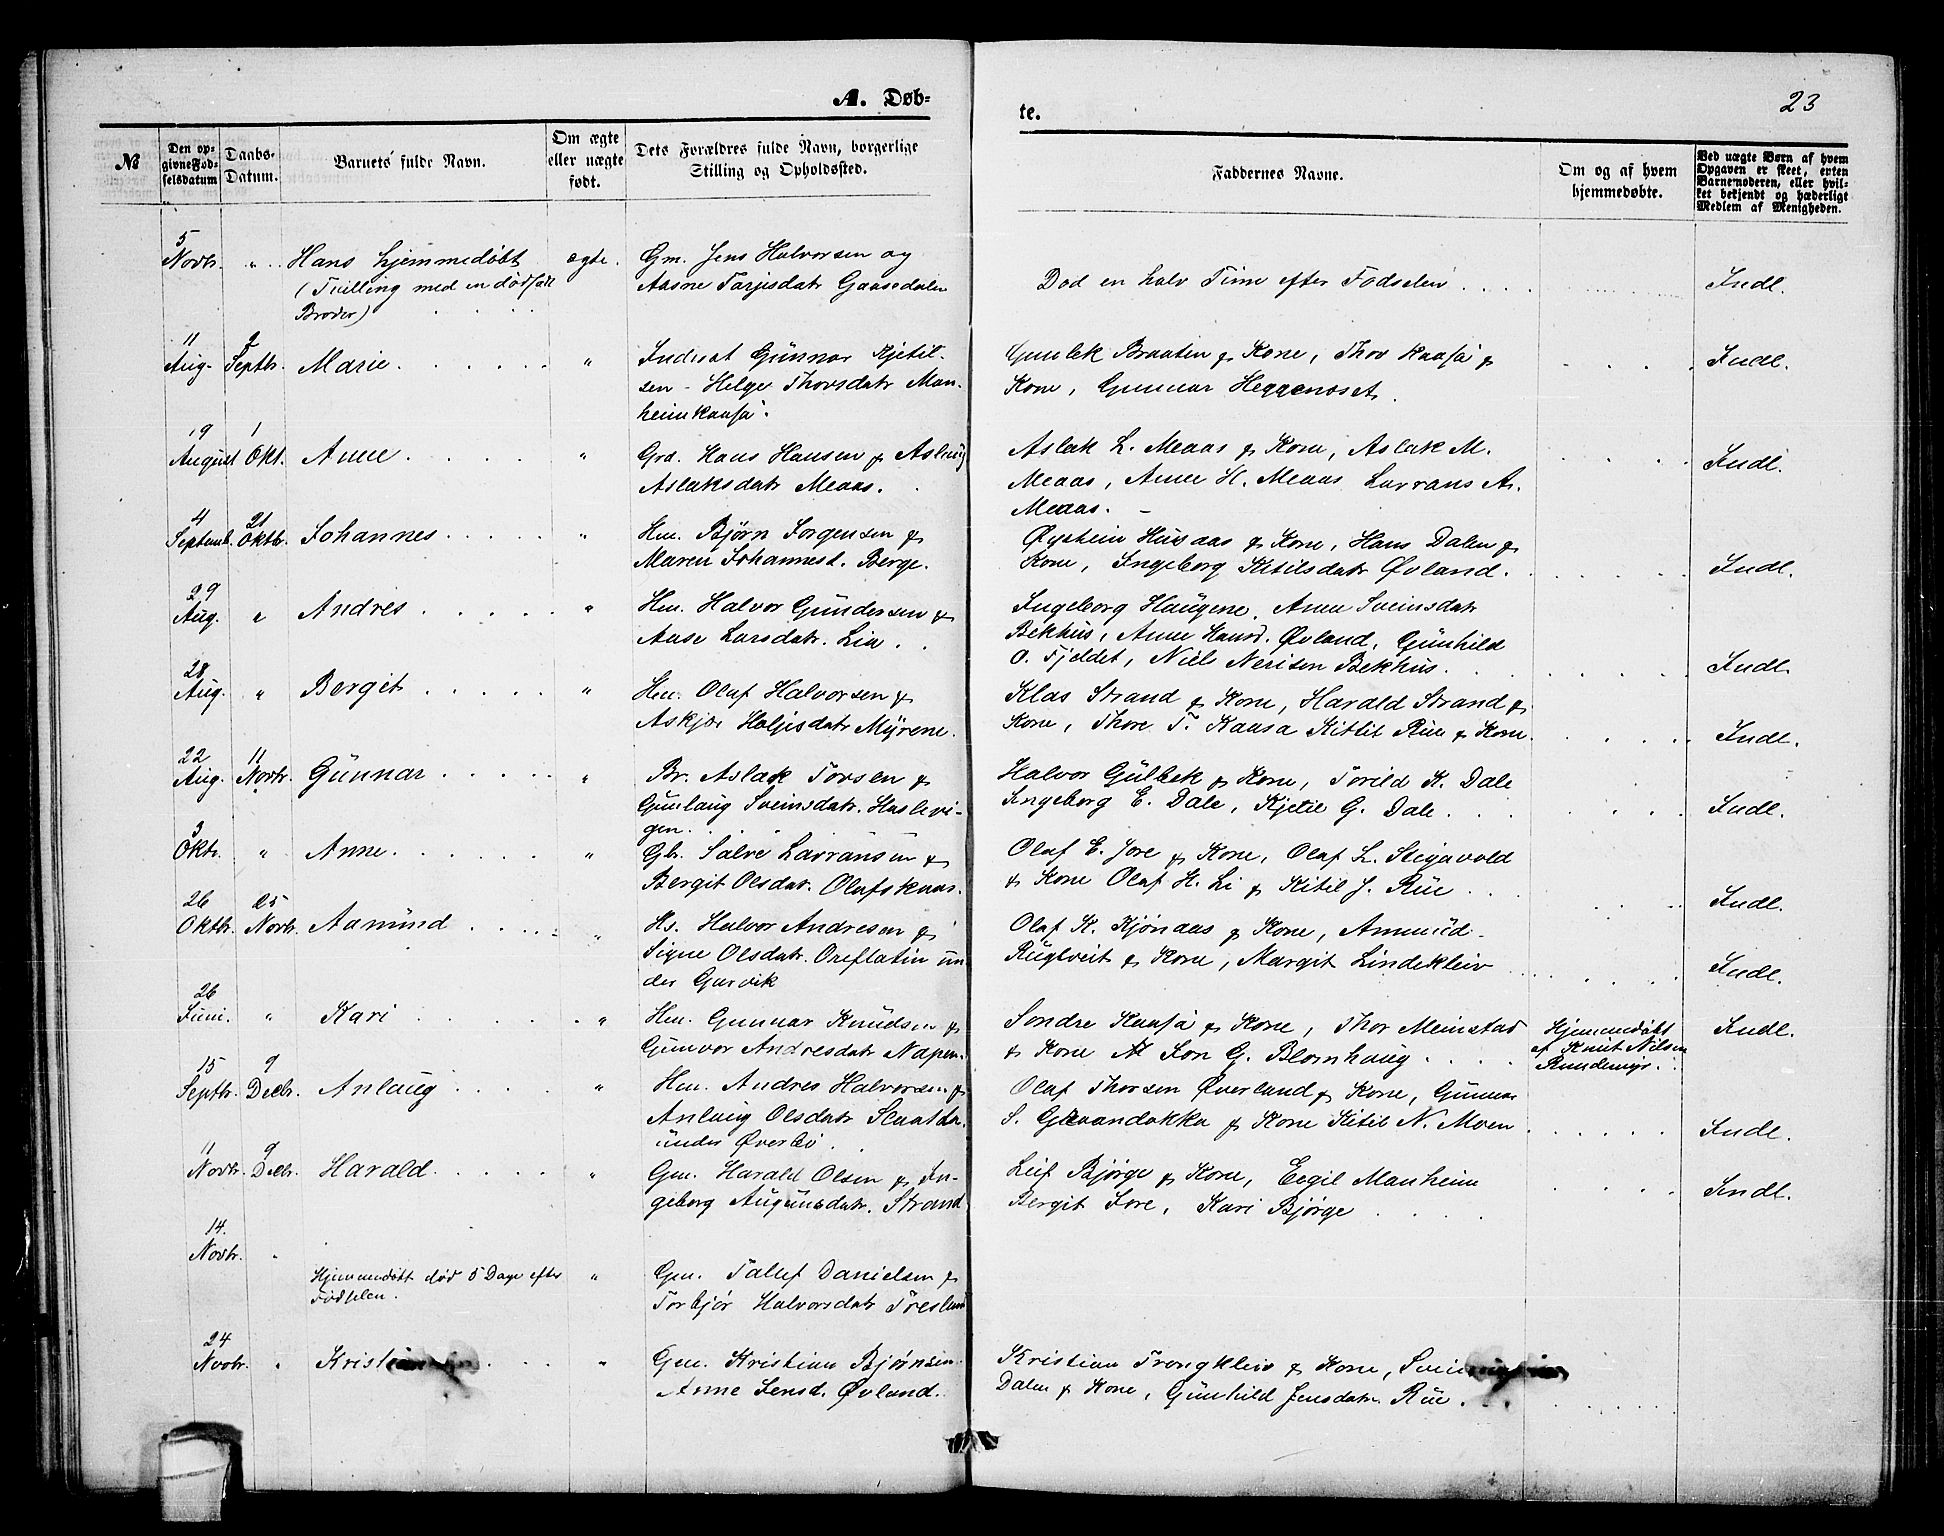 A. Døb-
te.
23
№
Den op-
givne Fød-
selsdatum
Daabs-
Datum.
Barnets fulde Navn.
Om ægte
eller uægte
født.
Dets Forældres fulde Navn, borgerlige
Stilling og Opholdssted.
Faddernes Navne.
Om og af hvem
hjemmedøbte.
Ved uægte Børn af hvem
Opgaven er skeet, enten
Barnemoderen, eller hvil-
ket bekjendt og hæderligt
Medlem af Menigheden.
5
Novbr. " Hans hjemmedøbt ægte. Gm. Jens Halvorsen og
(Tvilling med en dødfødt Aasne Tarjisdatr Gaasedalen
Broder)
Død en halv Time efter Fødselen Indl.
11 9
Aug. Septbr. Marie " Inderst Gunnar Kjetil-
sen - Helge Thorsdatr Man-
heimkaasa.
Gunlek Braaten & Kone, Thor Kaasa &
Kone, Gunnar Heggenoset. Indl.
19 1
August Okt. Anne " Grd. Hans Hansen & Aslaug
Aslaksdatr Meaas.
Aslak L. Meaas & Kone, Aslak M.
Meaas, Anne H. Meaas Lavrans A.
Meaas. - Indl.
4 21
Septemb. Oktbr. Johannes " Hm. Bjørn Jorgensen &
Maren Johannesd. Berge.
Øystein Husaas & Kone, Hans Dalen &
Kone, Ingeborg Kitilsdatr Øvland. Indl.
29
Aug. " Andres " Hm. Halvor Gundersen &
Aase Larsdatr. Lia.
Ingeborg Haugene. Anne Sveinsdatr
Bekhus, Anne Hansd. Øvland, Gunhild
O. Fjeldet, Niels Nerisen Bekhus. Indl.
28
Aug. " Bergit " Hm. Olaf Halvorsen &
Askjer Holjisdatr Myrene.
Klas Strand & Kone, Harald Strand &
Kone, Thore T. Kaasa Kittil Rue & Kone. Indl.
22 11
Aug. Novbr. Gunnar " Br. Aslak Torsen &
Gunlaug Sveinsdatr. Haslevi-
gen.
Halvor Gulbek & Kone, Torild K. Dale
Ingeborg E. Dale, Kjetil G. Dale. Indl.
3
Oktr. " Anne " Gbr. Salve Lavransen &
Bergit Olsdatr. Olafskaas.
Olaf E. Jore & Kone, Olaf L. Stigavold
& Kone Olaf H. Li & Kitil J. Rue Indl.
26 25
Oktbr. Novbr. Aamund " Hs. Halvor Andresen &
Signe Olsdatr. Oreflatin un-
der Garvik
Olaf K. Kjønaas & Kone, Ammund
Rugtveit & Kone, Margit Lindekleiv Indl.
26
Juni. " Kari " Hm. Gunnar Knudsen &
Gunvor Andresdatr Napen.
Sondre Kaasa & Kone, Thor Meinstad
& Kone Jon G. Blomhaug
Hjemmedøbt
af Knut Nilsen
Rundemyr. Indl.
15 9
Septbr. Decbr. Anlaug " Hm. Andres Halvorsen &
Anlaug Olsdatr Slaatta
under Øverbø.
Olaf Thorsen Øverland & Kone, Gunnar
S. Graandokka & Kone Kitil N. Moen Indl.
11 9
Novbr. Decbr. Harald " Gm. Harald Olsen & In-
geborg Augunsdatr. Strand
Leif Bjørge & Kone, Eegil Manheim
Bergit Jore, Kari Bjørge Indl.
14.
Novbr. "
Hjemmedøbt død 5 Dage efter
Fødselen. " Gm. Tallef Danielsen &
Torbjør Halvorsdatr Treslund
24
Novbr. " Kristian " Gm. Kristian Bjørnsen.
Anne Jensd. Øvland.
Kristian Trongkleiv & Kone, Svein
Dalen & Kone, Gunhild Jensdatr. Rue.